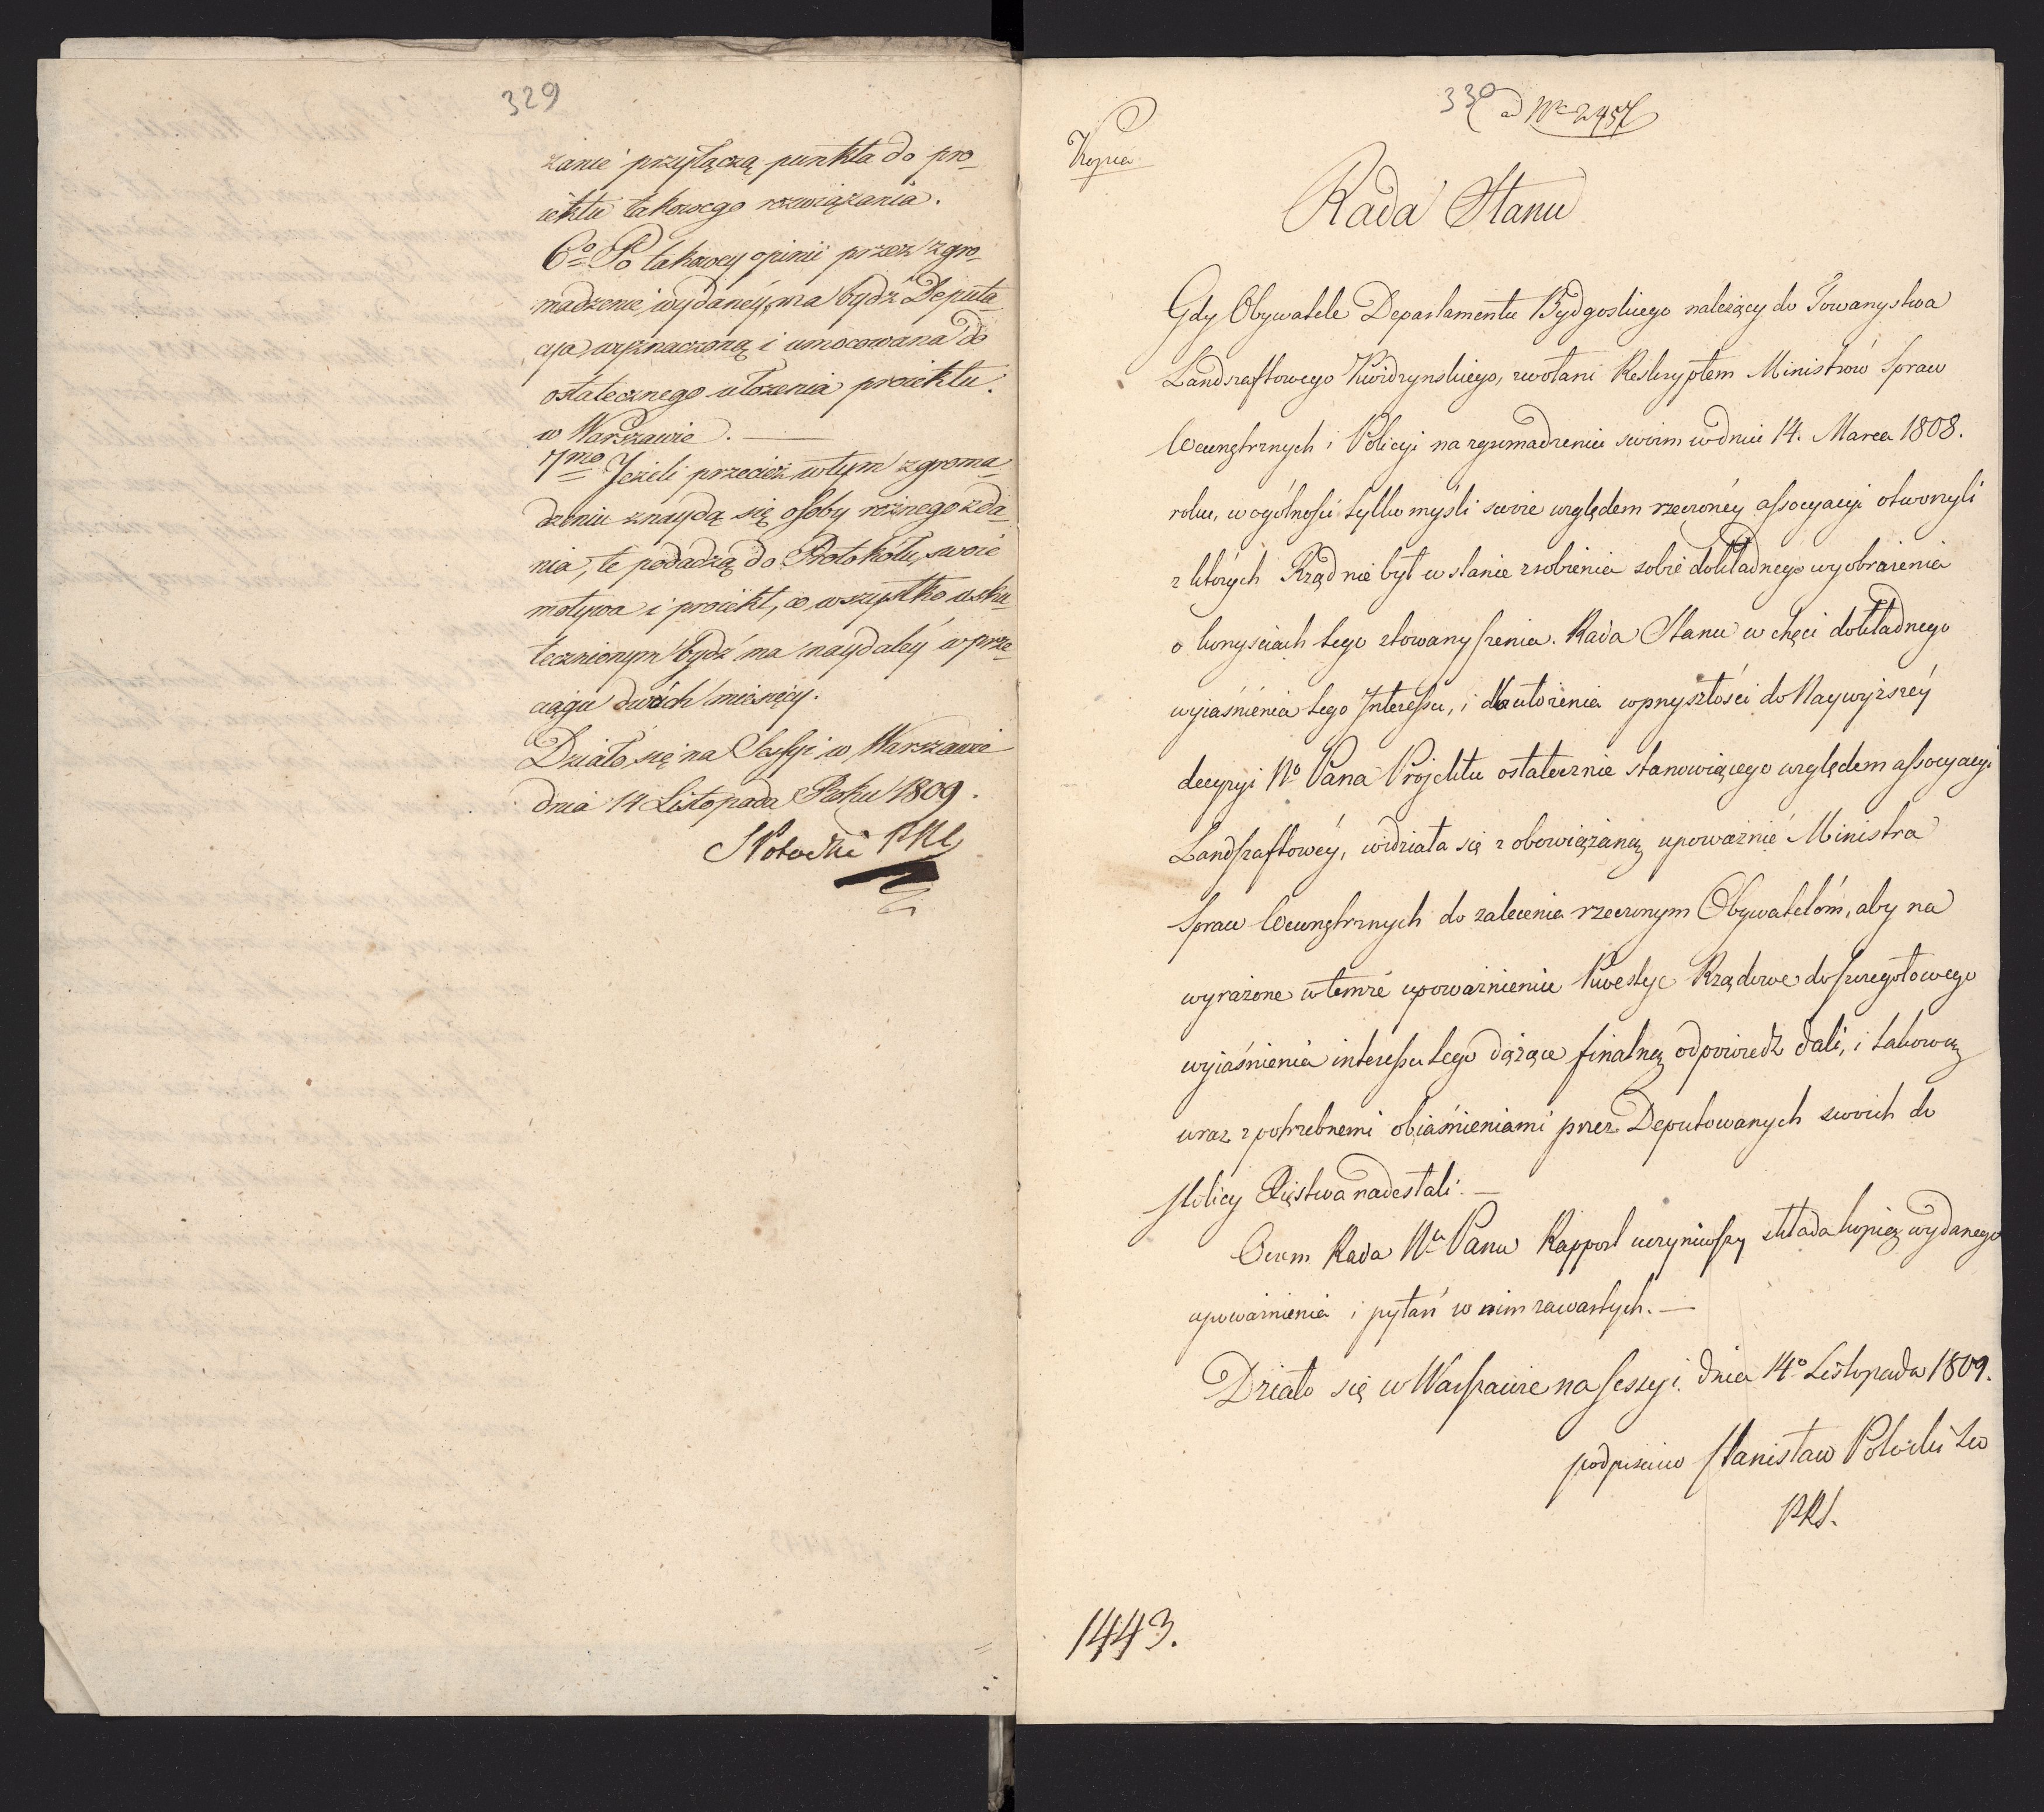 329
żanie przyłączą punkta do pro-
iektu takowego rozwiązania.
6o Po takowey opinii przez zgro-
madzenie wydaney, ma bydź Deputa-
cya wyznaczoną i umocowana do
ostatecznego ułożenia proiektu
w Warszawie. —
7mo Jeżeli przecież w tym zgroma-
dzeniu znaydą się osoby rożnego zda-
nia, te podadzą do Protokółu, swoie
motywa i proiekt, co wszystko usku-
tecznionym bydź ma naydaléy w prze-
ciągu dwóch miesięcy.
Działo się na Sessyi w Warszawie
dnia 14 Listopada Roku 1809.
S Potocki
330 ad Nr 2457
Kopia
Rada Stanu
Gdy Obywatele Departamentu Bydgoskiego należący do Towarzystwa
Landszaftowego Kwidzynskiego, zwołani Reskryptem Ministrów Spraw
Wewnętrznych i Policyi na zgromadzeniu swoim w dniu 14. Marca 1808.
roku, w ogólności tylko myśli swoie względem rzeczonéy assocyacyi otworzyli
z których Rząd nie był w stanie zrobienia sobie dokładnego wyobrażenia
o korzyściach tego stowarzyszenia. Rada Stanu w chęci dokładnego
wyiaśnienia tego Interessu, i dla ułożenia w przyszłości do Naywyższéy
decyzyi No Pana Projektu ostatecznie stanowiącego względem assocyacyi
Landszaftowéy, widziała się z obowiązaną upoważnić Ministra
Spraw Wewnętrznych do zalecenia rzeczonym Obywatelóm, aby na
wyrażone w temże upoważnieniu Kwestye Rządowe do szczegółowego
wyiaśnienia interessu tego dążące finalną odpowiedz dali, i takową
wraz z potrzebnemi obiaśnieniami przez Deputowanych swoich do
stolicy Xięstwa nadesłali. —
Oczem Rada Nu Panu Rapport uczyniwszy składa kopią wydanego
upoważnienia i pytań w nim zawartych. —
Działo się w Warszawie na sessyi dnia 14o Listopada 1809.
podpisano Stanisław Potocki
PRS.
1443.